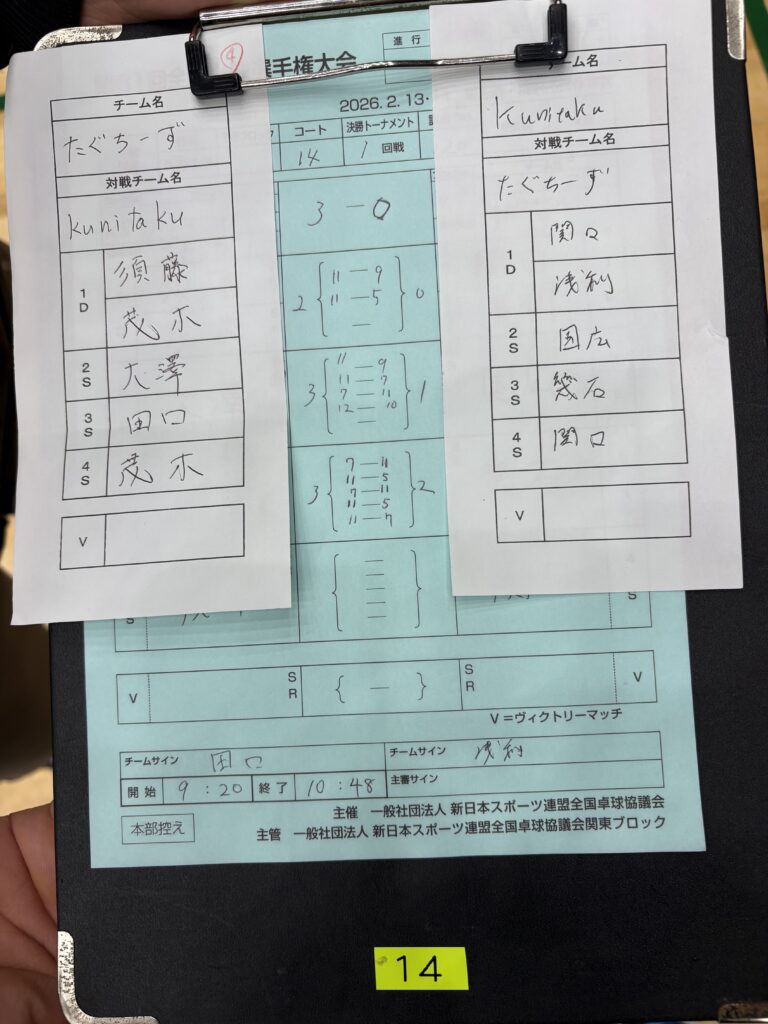 ④
選手権大会
進行
2026.2.13・
コート
14
決勝トーナメント
1 回戦
チーム名
たぐちーず
対戦チーム名
kunitaku
1D
須藤
茂木
2S
大澤
3S
田口
4S
茂木
V
チーム名
kunitaku
対戦チーム名
たぐちーず
1D
関口
浅利
2S
国広
3S
幾石
4S
関口
V
3 — 0
2 { 11 — 9
11 — 5
— } 0
3 { 11 — 9
11 — 7
7 — 11
12 — 10
— } 1
3 { 7 — 11
11 — 5
7 — 11
11 — 5
11 — 7 } 2
{ — — — — — }
S
S
V
S
R
{ — }
S
R
V
V=ヴィクトリーマッチ
チームサイン 田口
チームサイン 浅利
開始 9:20 終了 10:48
主審サイン
本部控え
主催 一般社団法人 新日本スポーツ連盟全国卓球協議会
主管 一般社団法人 新日本スポーツ連盟全国卓球協議会関東ブロック
14